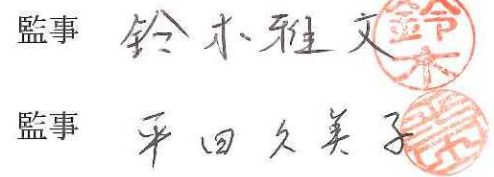 監事 鈴木雅文 鈴木
監事 平田久美子